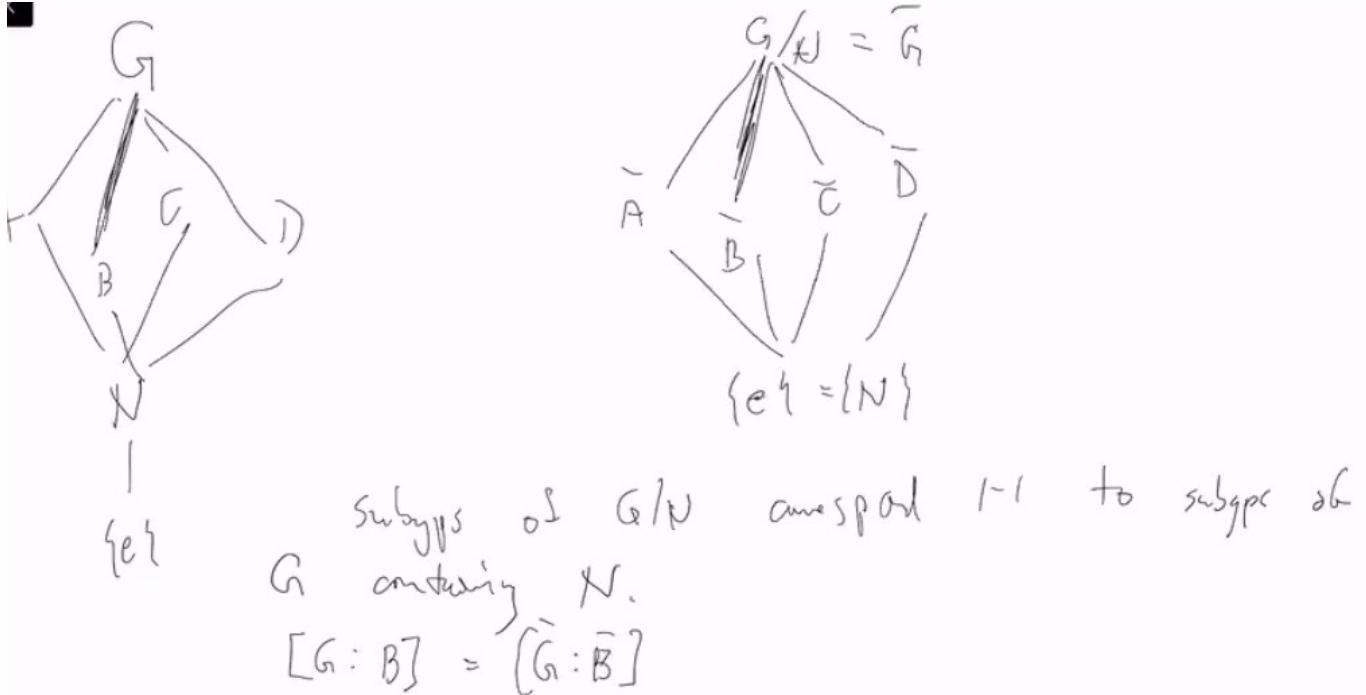 G
G/N = G̅
C
D
B
A̅
B̅
C̅
D̅
N
{e} = {N}
{e}
subgps of G/N correspond 1-1 to subgps of
G containing N.
[G : B] = [G̅ : B̅]